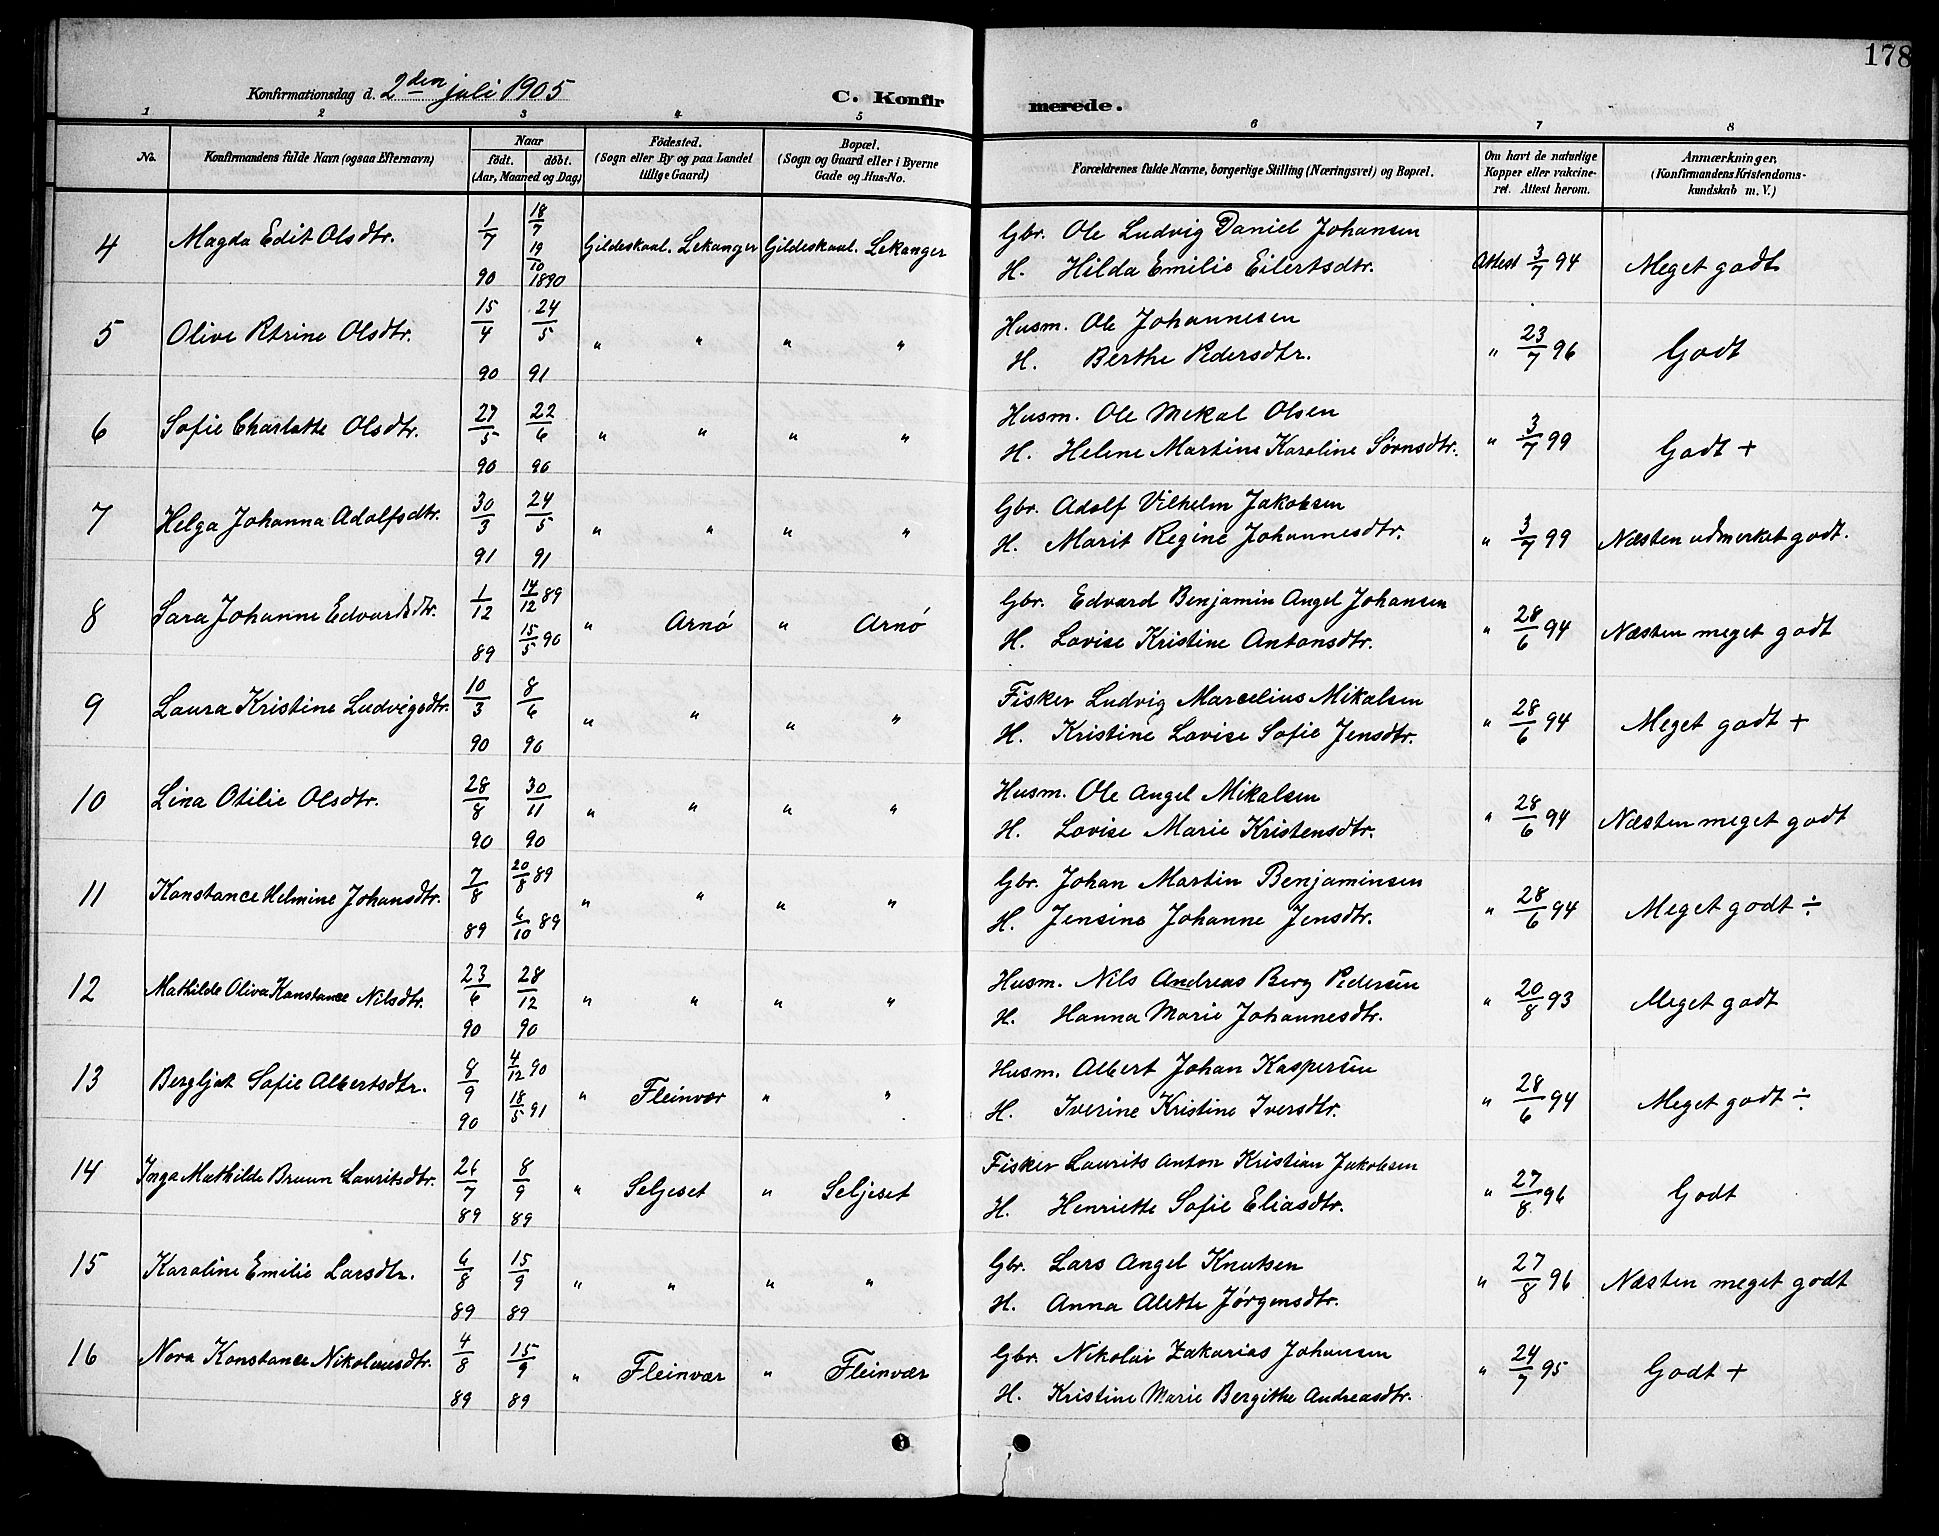 178
Konfirmationsdag d. 2den juli 1905
C. Konfirmerede.
1 2 3 4 5 6 7 8
No. Konfirmandens fulde Navn (ogsaa Efternavn) Naar födt. döbt. (Aar, Maaned og Dag) Födested. (Sogn eller By og paa Landet tillige Gaard) Bopæl. (Sogn og Gaard eller i Byerne Gade og Hus-No. Forældrenes fulde Navne, borgerlige Stilling (Næringsvei) og Bopæl. Om havt de naturlige Kopper eller vakcineret. Attest herom. Anmærkninger, (Konfirmandens Kristendomskundskab m. V.)
4 Magda Edit Olsdtr. 1/7 90 18/7 19/10 1890 Gildeskaal. Lekanger Gildeskaal. Lekanger Gbr. Ole Ludvig Daniel Johansen
H. Hilda Emilie Eilertsdtr. Attest 3/7 94 Meget godt
5 Olive Petrine Olsdtr. 15/4 90 24/5 91 " " " " Husm. Ole Johannesen
H. Berthe Pedersdtr. " 23/7 96 Godt
6 Sofie Charlotte Olsdtr. 27/5 90 22/6 90 " " " " Husm. Ole Mekal Olsen
H. Helene Martine Karoline Sørnsdtr. " 3/7 99 Godt +
7 Helga Johanna Adolfsdtr. 30/3 91 24/5 91 " " " " Gbr. Adolf Vilhelm Jakobsen
H. Marit Regine Johannesdtr. " 3/7 99 Næsten udmerket godt.
8 Sara Johanne Edvardsdtr. 1/12 89 14/12 89 15/5 90 " Arnø " Arnø Gbr. Edvard Benjamin Angel Johansen
H. Lovise Kristine Antonsdtr. " 28/6 94 Næsten meget godt
9 Laura Kristine Ludvigsdtr. 10/3 90 8/6 90 " " " " Fisker Ludvig Marcelius Mikalsen
H. Kristine Lovise Sofie Jensdtr. " 28/6 94 Meget godt +
10 Lina Otilie Olsdtr. 28/8 90 30/11 90 " " " " Husm. Ole Angel Mikalsen
H. Lovise Marie Kristensdtr. " 28/6 94 Næsten meget godt
11 Konstance Helmine Johansdtr. 7/8 89 20/8 89 6/10 89 " " " " Gbr. Johan Martin Benjaminsen
H. Jensine Johanne Jensdtr. " 28/6 94 Meget godt ÷
12 Mathilde Oliva Konstance Nilsdtr. 23/6 90 28/12 90 " " " " Husm. Nils Andreas Berg Pedersen
H. Hanna Marie Johannesdtr. " 20/8 93 Meget godt
13 Bergljot Sofie Albertsdtr. 8/9 90 4/12 90 18/5 91 " Fleinvær " " Husm. Albert Johan Kaspersen
H. Iverine Kristine Iversdtr. " 28/6 94 Meget godt ÷
14 Inga Mathilde Bruun Lauritsdtr. 26/7 89 8/9 89 " Seljeset " Seljeset Fisker Laurits Anton Kristian Jakobsen
H. Henriette Sofie Eliasdtr. " 27/8 96 Godt
15 Karoline Emilie Larsdtr. 6/8 89 15/9 89 " " " " Gbr. Lars Angel Knutsen
H. Anna Alette Jørgensdtr. " 27/8 96 Næsten meget godt
16 Nora Konstance Nikolaisdtr. 4/8 89 15/9 89 " Fleinvær " Fleinvær Gbr. Nikolai Zakarias Johansen
H. Kristine Marie Bergithe Andreasdtr. " 24/7 95 Godt +